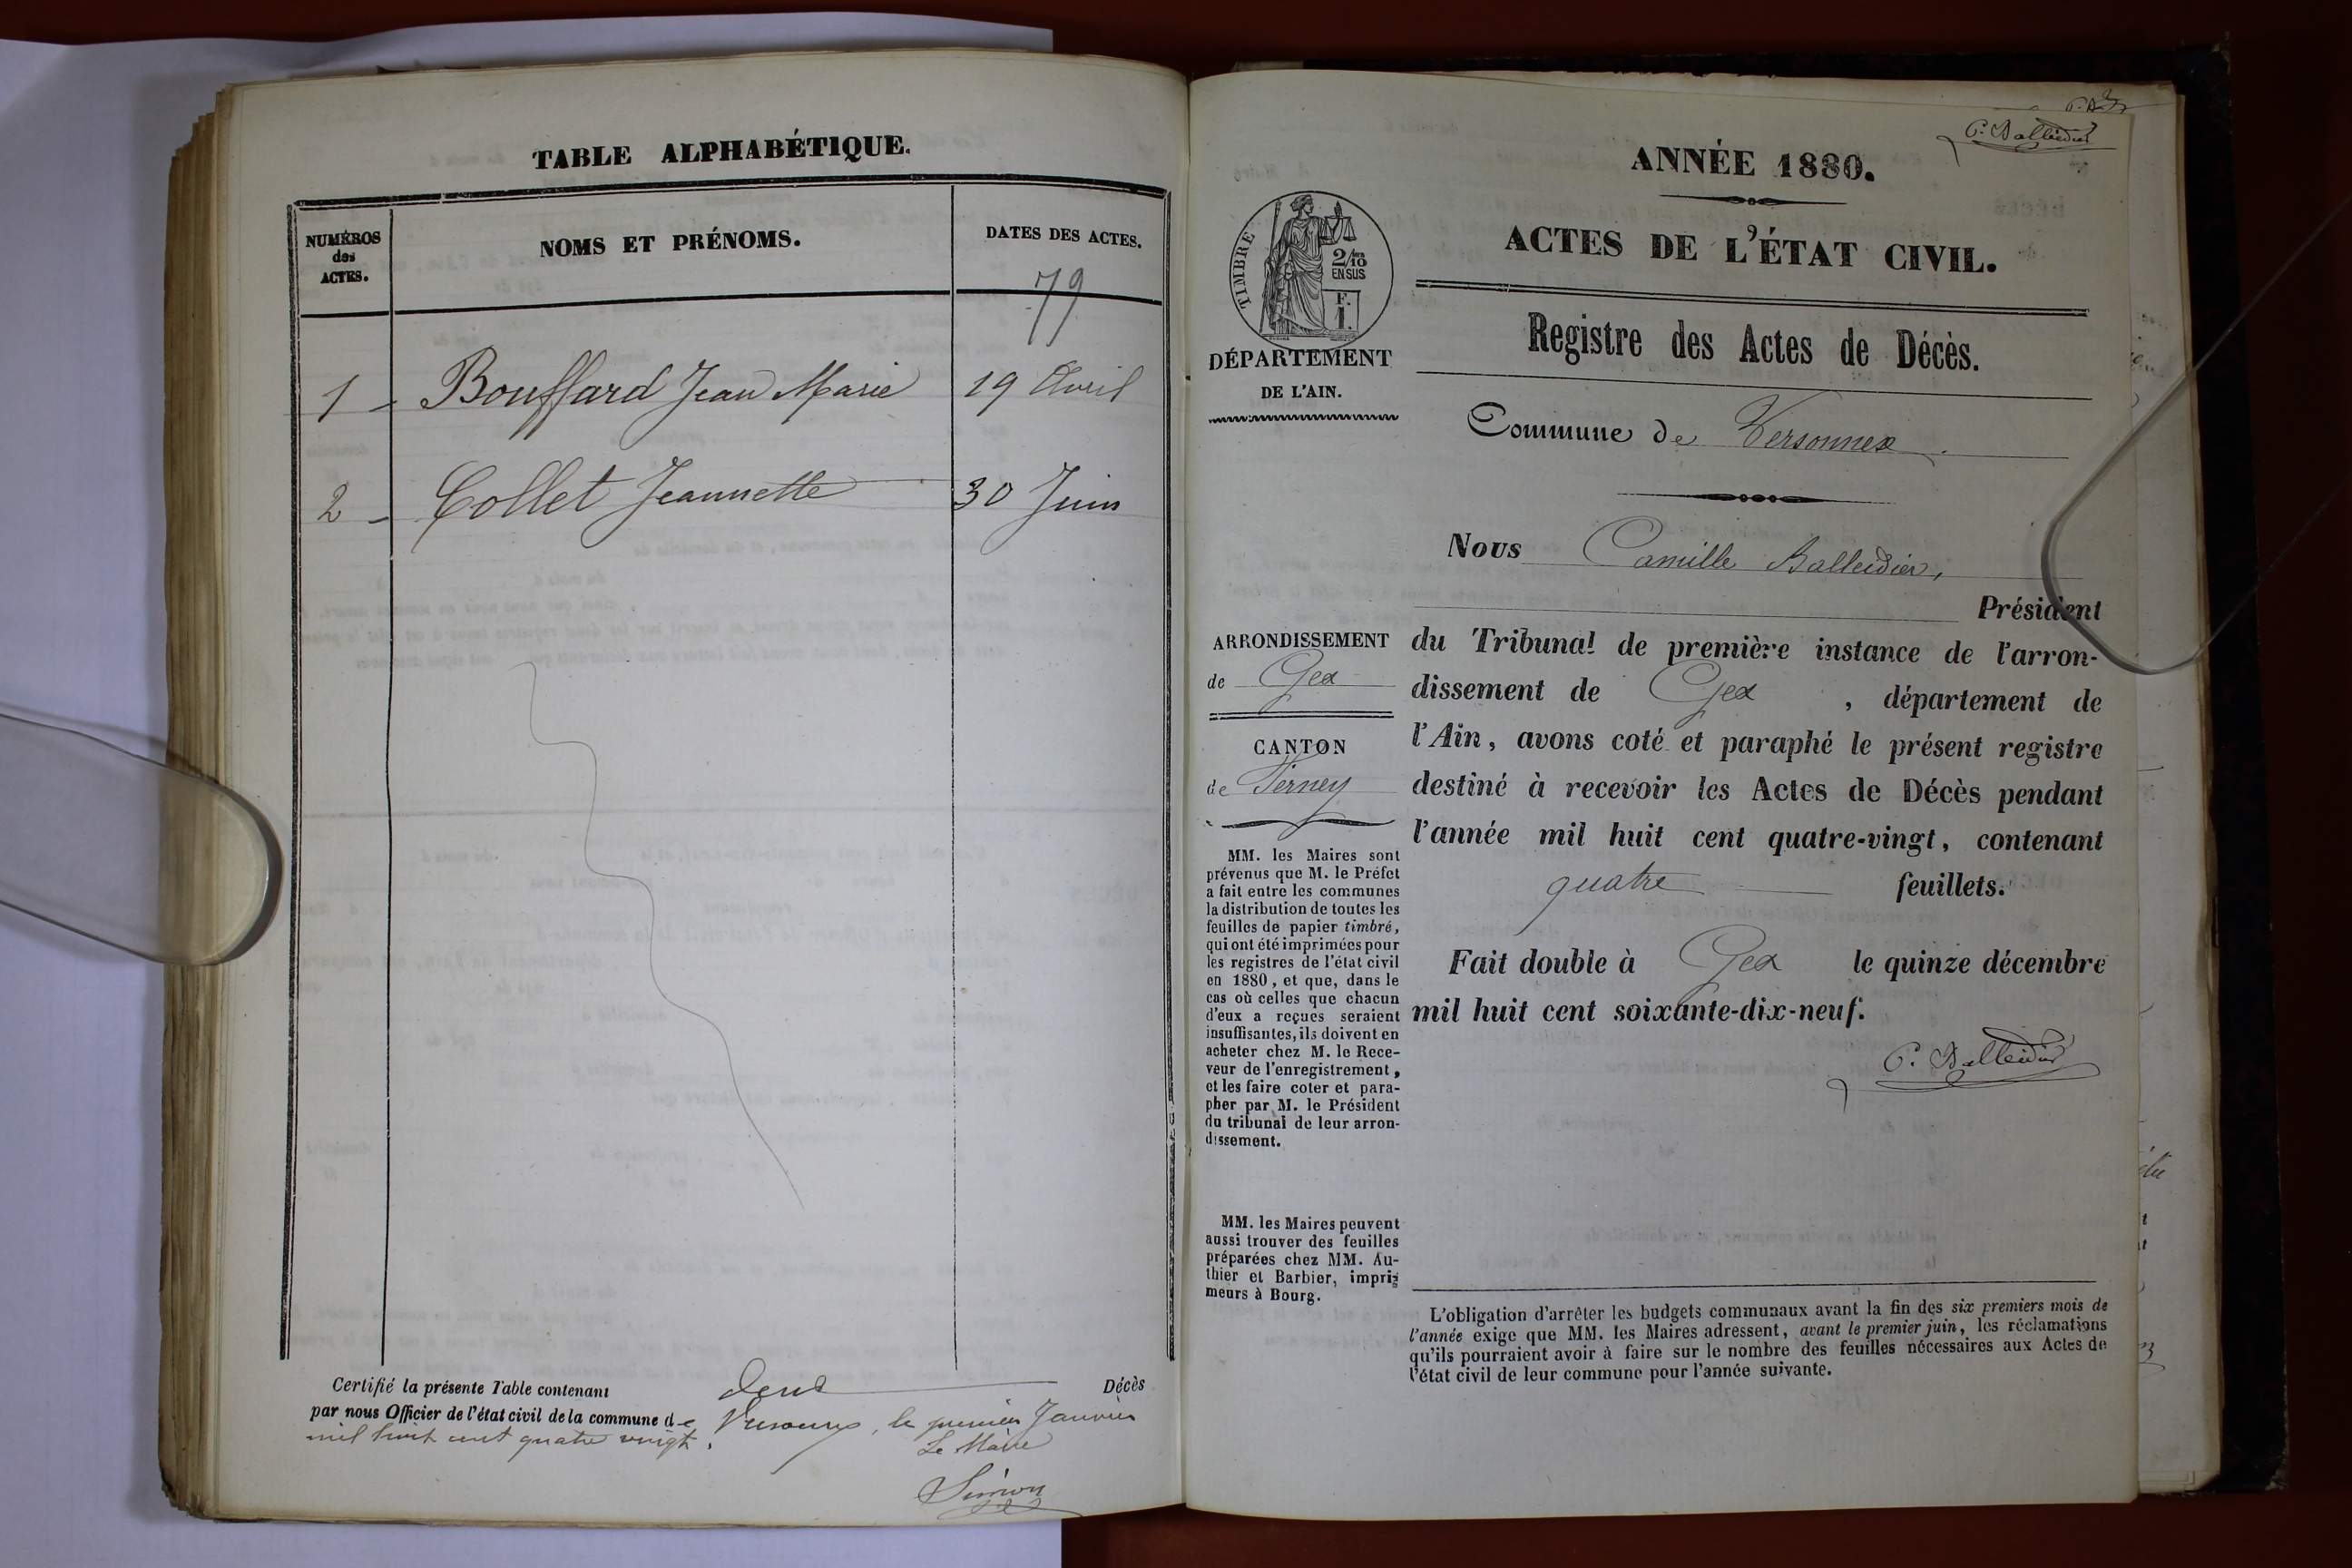 TABLE ALPHABÉTIQUE.
NUMÉROS
des
ACTES.
NOMS ET PRÉNOMS.
DATES DES ACTES.
79
1 - Bouffard Jean Marie 19 Avril
2 - Collet Jeannette 30 Juin
Certifié la présente Table contenant deux Décès
par nous Officier de l'état civil de la commune de Versonnex, le premier Janvier
mil huit cent quatre vingt.
Le Maire
Simon
ANNÉE 1880.
ACTES DE L'ÉTAT CIVIL.
Registre des Actes de Décès.
Commune de Versonnex.
TIMBRE
2/10
EN SUS
F.
1.
DÉPARTEMENT
DE L'AIN.
ARRONDISSEMENT
de Gex
CANTON
de Ferney
MM. les Maires sont
prévenus que M. le Préfet
a fait entre les communes
la distribution de toutes les
feuilles de papier timbré,
qui ont été imprimées pour
les registres de l'état civil
en 1880, et que, dans le
cas où celles que chacun
d'eux a reçues seraient
insuffisantes, ils doivent en
acheter chez M. le Rece-
veur de l'enregistrement,
et les faire coter et para-
pher par M. le Président
du tribunal de leur arron-
dissement.
MM. les Maires peuvent
aussi trouver des feuilles
préparées chez MM. Au-
thier et Barbier, impri-
meurs à Bourg.
Nous Camille Balleidier,
Président
du Tribunal de première instance de l'arron-
dissement de Gex, département de
l'Ain, avons coté et paraphé le présent registre
destiné à recevoir les Actes de Décès pendant
l'année mil huit cent quatre-vingt, contenant
quatre feuillets.
Fait double à Gex le quinze décembre
mil huit cent soixante-dix-neuf.
C. Balleidier
L'obligation d'arrêter les budgets communaux avant la fin des six premiers mois de
l'année exige que MM. les Maires adressent, avant le premier juin, les réclamations
qu'ils pourraient avoir à faire sur le nombre des feuilles nécessaires aux Actes de
l'état civil de leur commune pour l'année suivante.
C. Balleidier